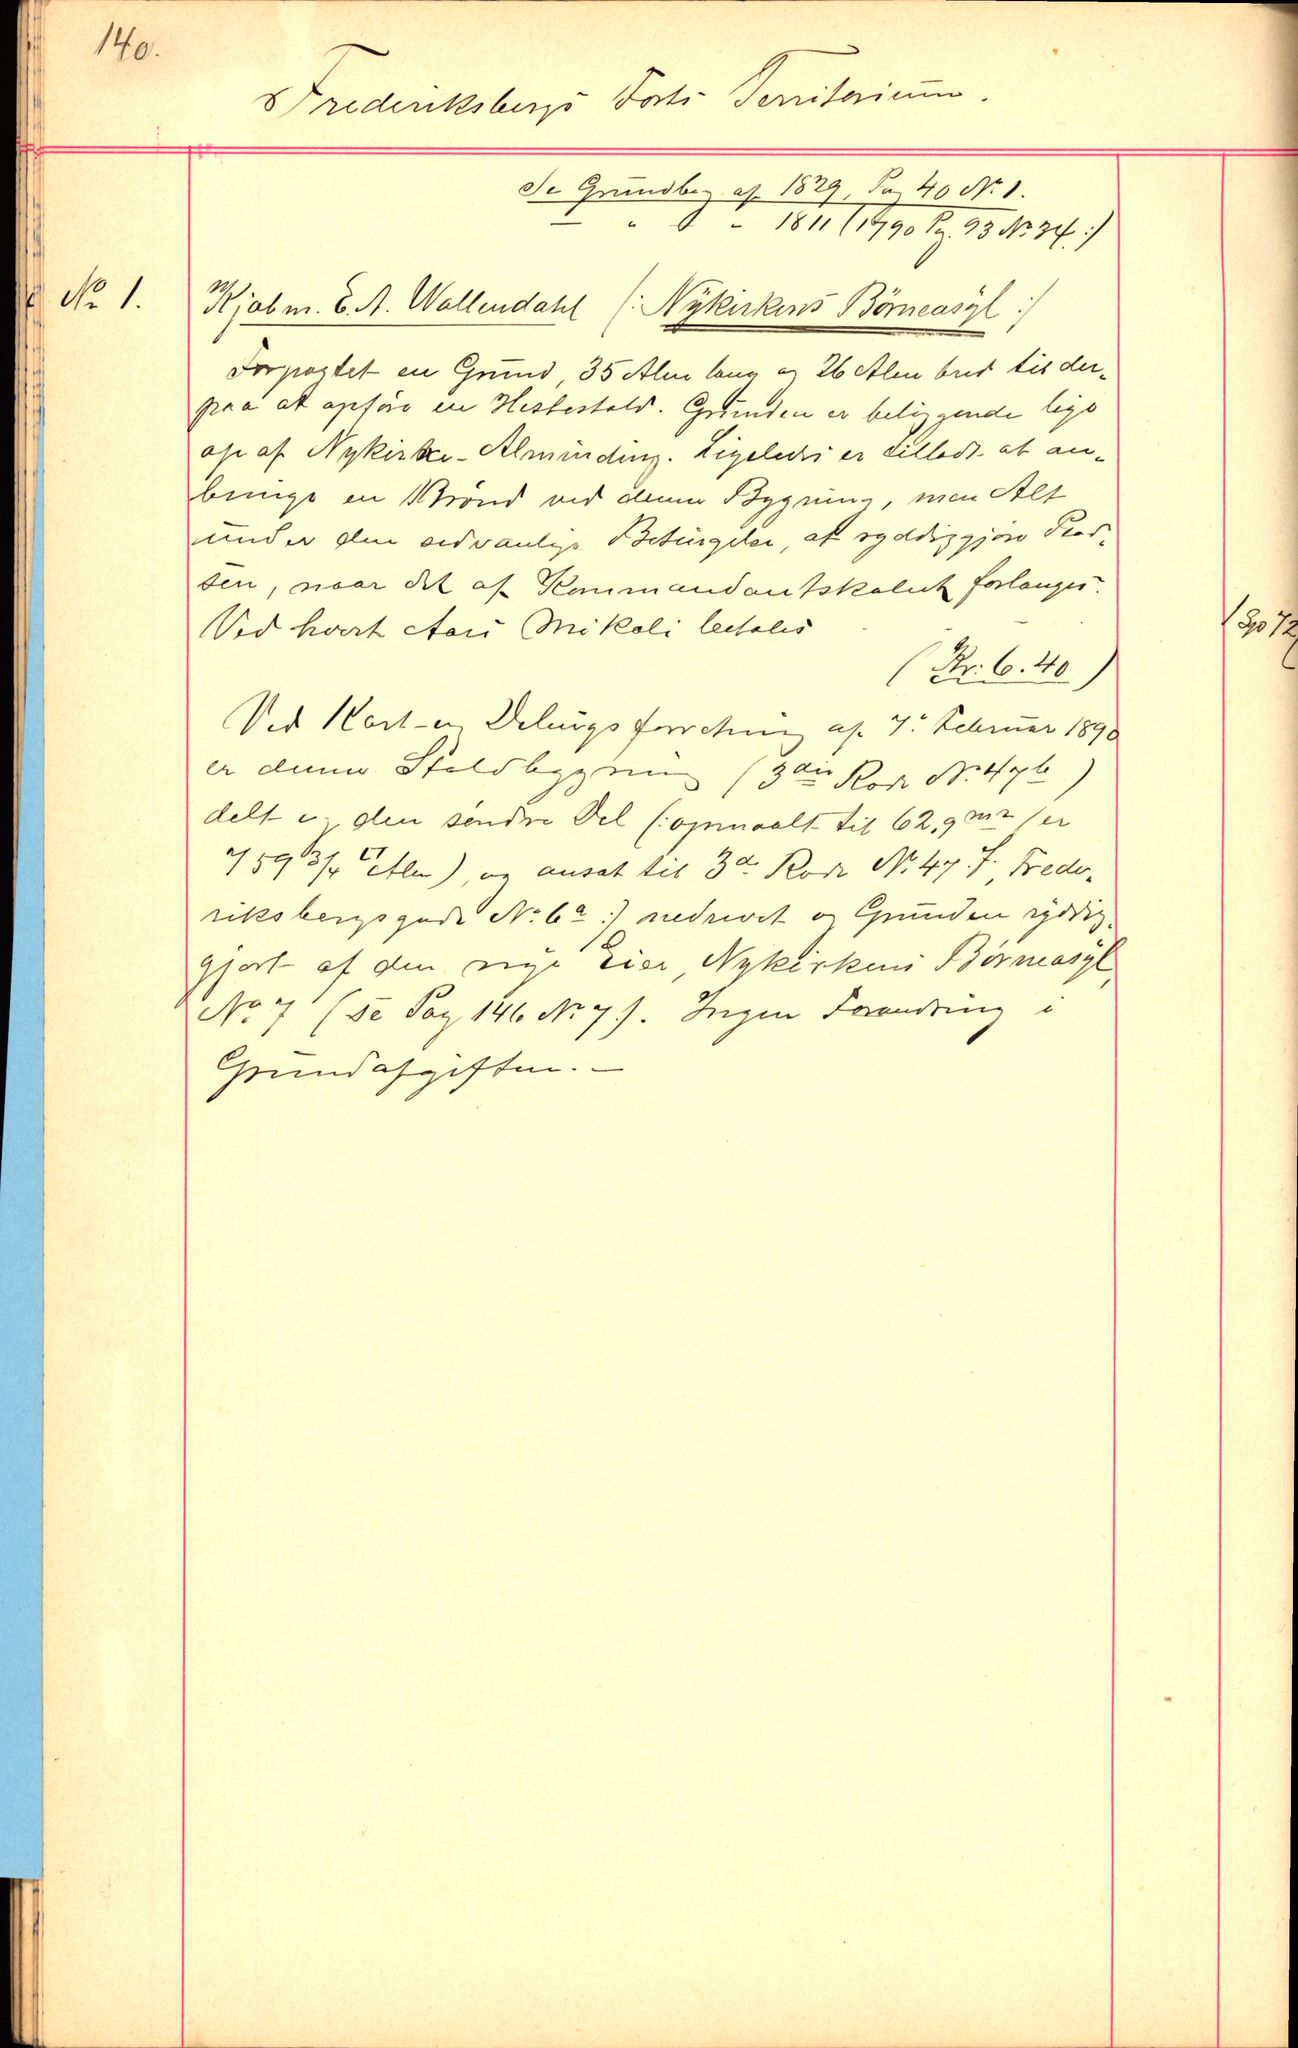 140.
Frederiksbergs Forts Territorium.
Se Grundbog af 1829, Pag 40 No 1.
— " — 1811 (1790 Pg. 93 No 34 :)
No 1.
Kjøbm. E. A. Wallendahl (: Nykirkens Börneasyl :)
Forpagtet en Grund, 35 Alen lang og 26 Alen bred til der-
paa at opföre en Hestestald. Grunden er beliggende lige
op af Nykirke-Alminding. Ligeledes er tilladt at an-
bringe en Brönd ved denne Bygning, men Alt
under den sedvanlige Betingelse, at ryddiggjöre Plad-
sen, naar det af Kommandantskabet forlanges.
Ved hvert Aars Mikeli betales
(Kr: 6.40)
Ved Kort- og Delingsforretning af 7. Februar 1890
er denne Staldbygning (3die Rode No 47b)
delt og den söndre Del (: opmaalt til 62,9 m2 (er
159 3/4 □ Alen), og ansat til 3d Rode No 47.f, Frede-
riksbergsgade No 6a :) nedrevet og Grunden ryddig-
gjort af den nye Eier, Nykirkens Börneasyl,
No 7 (Se Pag 146 No 7). Ingen Forandring i
Grundafgiften. —